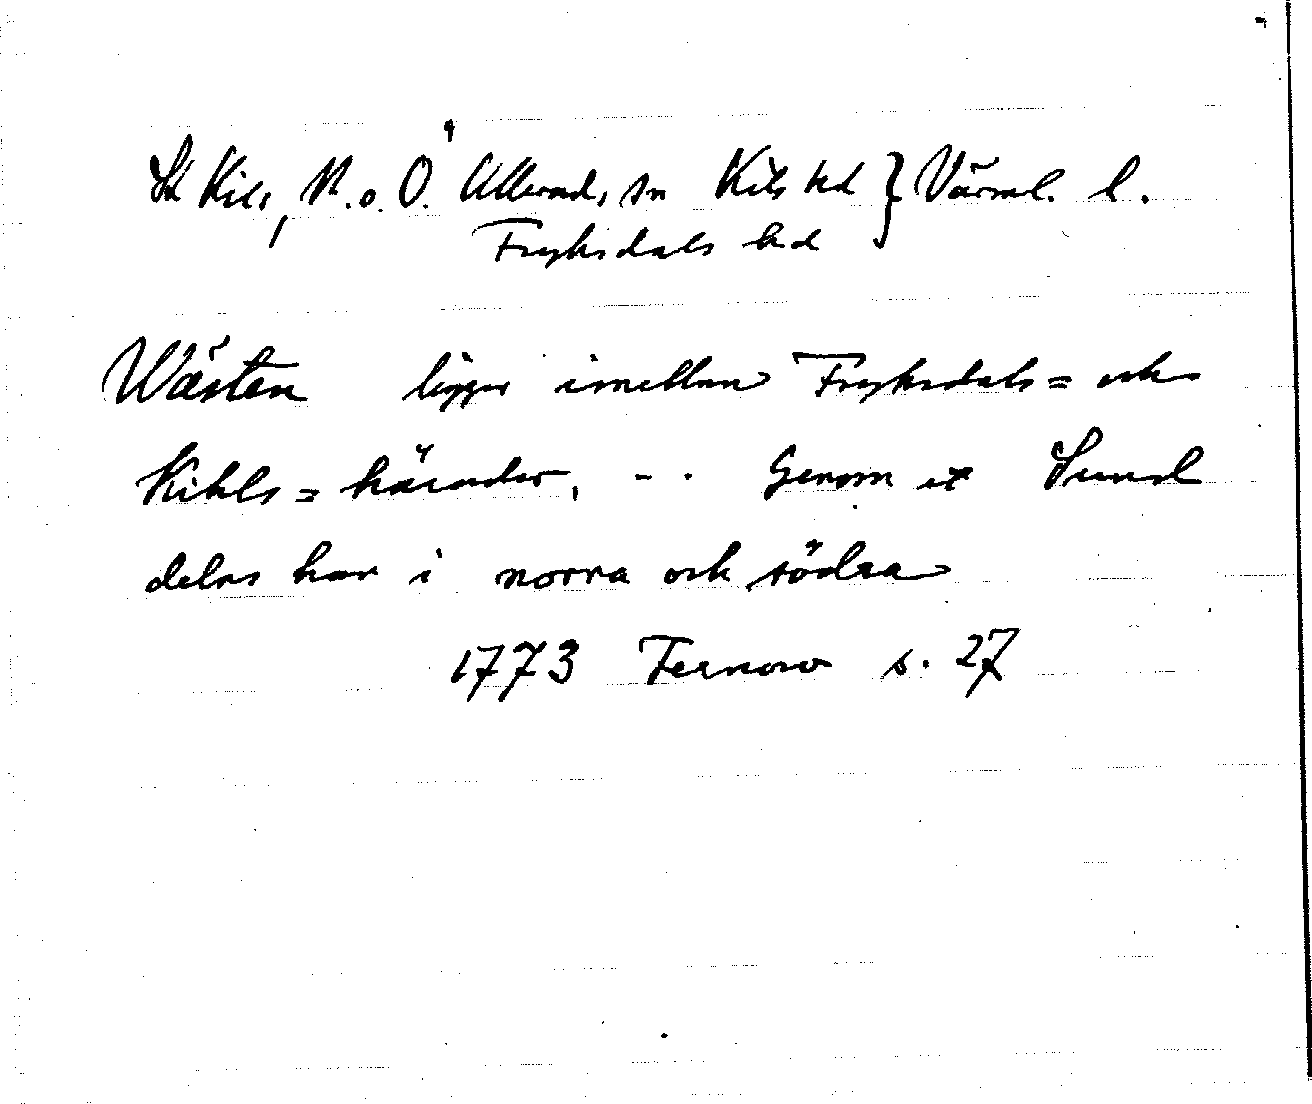 St Kils, N. o. Ö. Ulleruds sn Kils hd } Värml. l.
Fryksdals hd
Wästen ligger imellan Fryksdals= och
Kihls=härader, - - . Genom et Sund
delas han i norra och södra
1773 Fernow s. 27